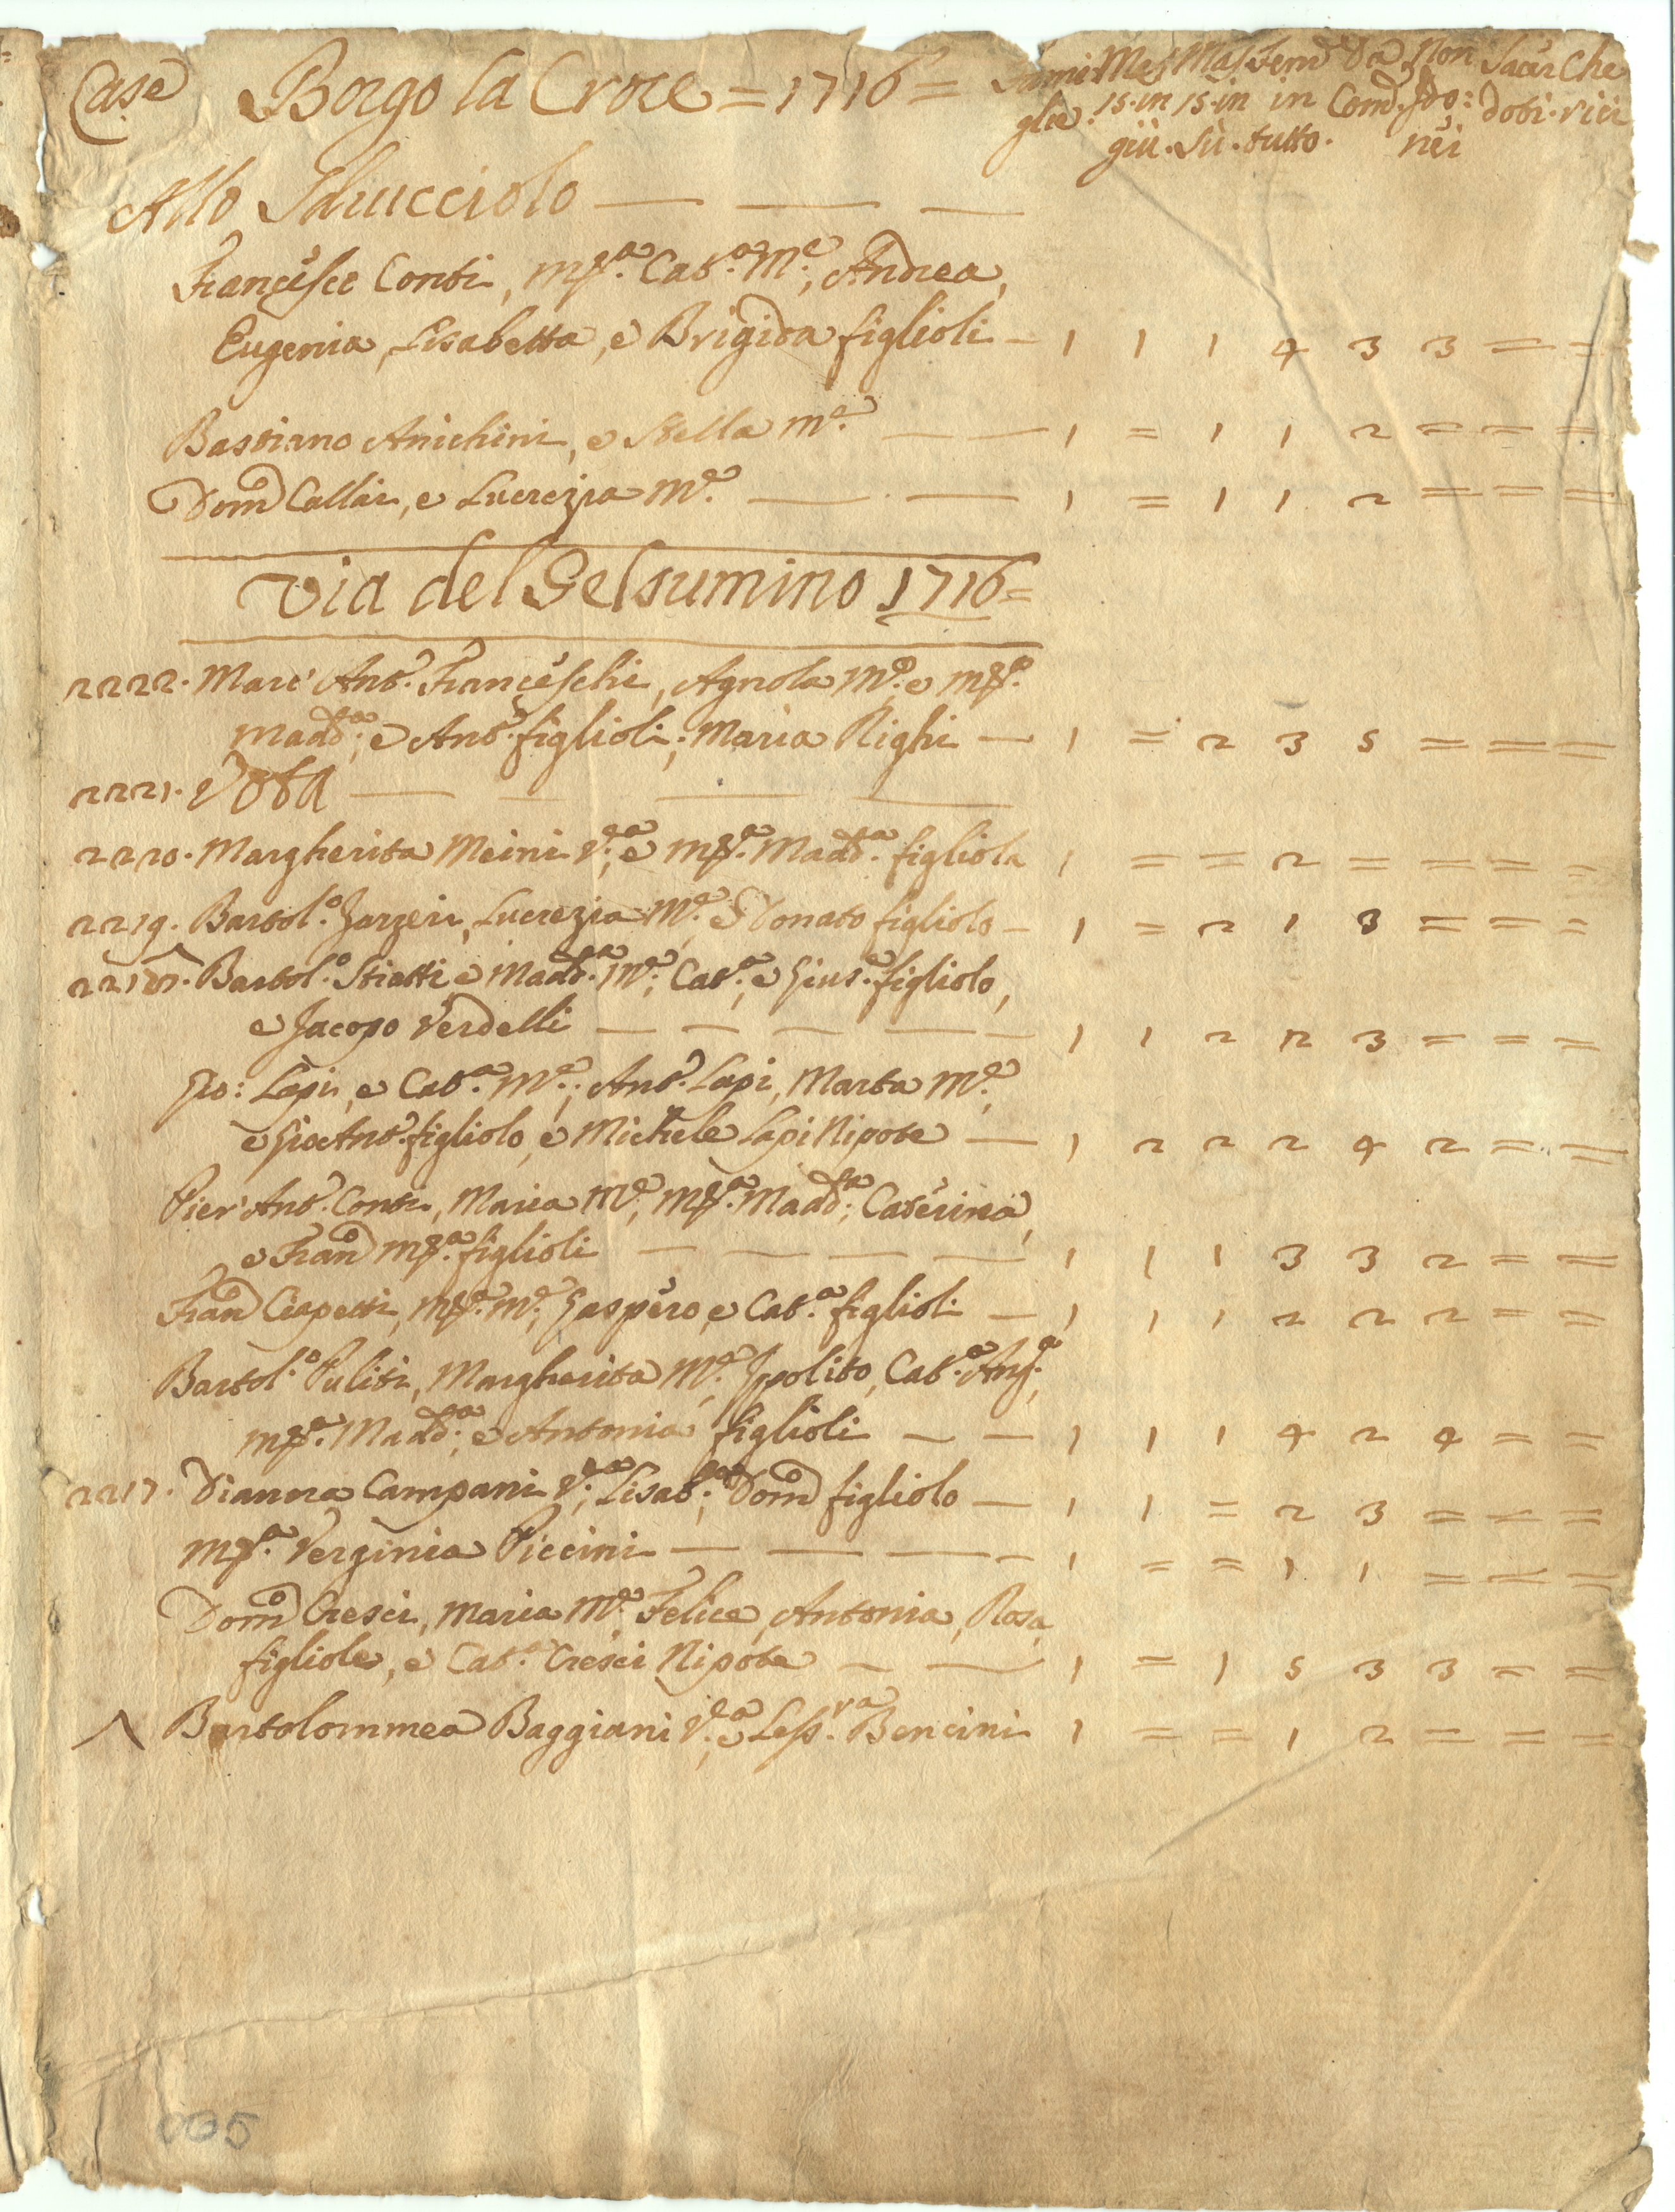 Case Borgo la Croce = 1716 = Fami Mas Mas Fem Da Non Sacer Che
glie. 15. in 15. in in Com. Ido: doti. rici
giù. Sù. tutto. nei
Allo Sdrucciolo
Francesco Conti, Mª. Catª. Mᵉ., Andrea,
Eugenia, Lisabetta, e Brigida figlioli - 1 1 1 4 3 3 = =
Bastiano Anichini, e Stella Mᵉ. 1 = 1 1 2 = = =
Domᶜᵒ Callai, e Lucrezia Mᵉ. 1 = 1 1 2 = = =
Via del Gelsumino 1716 =
2222. Marc' Antº. Franceschi, Agnola Mᵉ. e Mª.
Maddª., e Antº. figlioli; Maria Righi - 1 = 2 3 5 = = =
2221. Vota
2220. Margherita Meini Vᵃ. e Mª. Maddª. figliola 1 = = 2 = = = =
2219. Bartolº. Zarzeri, Lucrezia Mᵉ. e Donato figliolo - 1 = 2 1 3 = = =
2218. Bartolº. Stiatti e Maddª. Mᵉ., Catª., e Giusᵉ. figliolo,
e Jacopo Verdelli 1 1 2 2 3 = = =
Gio: Lapi, e Catª. Mᵉ.; Antº. Lapi, Marta Mᵉ.,
e Gio Antº. figliolo, e Michele Lapi Nipote - 1 2 2 2 4 2 = =
Pier' Antº. Conti, Maria Mᵉ., Mª. Maddª., Caterina,
e Franᶜᵒ Mª. figlioli 1 1 1 3 3 2 = =
Franᶜᵒ Ciapetti, Mª. Mᵉ., Gaspero, e Catª. figlioli - 1 1 1 2 2 2 = =
Bartolº. Puliti, Margherita Mᵉ., Ipolito, Catª. Angª.,
Mª. Maddª., e Antonia figlioli 1 1 1 4 2 4 = =
2217. Dianora Campani Vᵃ., Lisabª., Domᶜᵒ figliolo - 1 1 = 2 3 = = =
Mª. Verginia Piccini 1 = = 1 1 = = =
Domᶜᵒ Cresci, Maria Mᵉ., Felice, Antonia, Rosa,
figliole, e Catª. Cresci Nipote 1 = 1 5 3 3 = =
Bartolommea Baggiani Vᵃ., e Lessʳᵃ. Bencini 1 = = 1 2 = = =
005